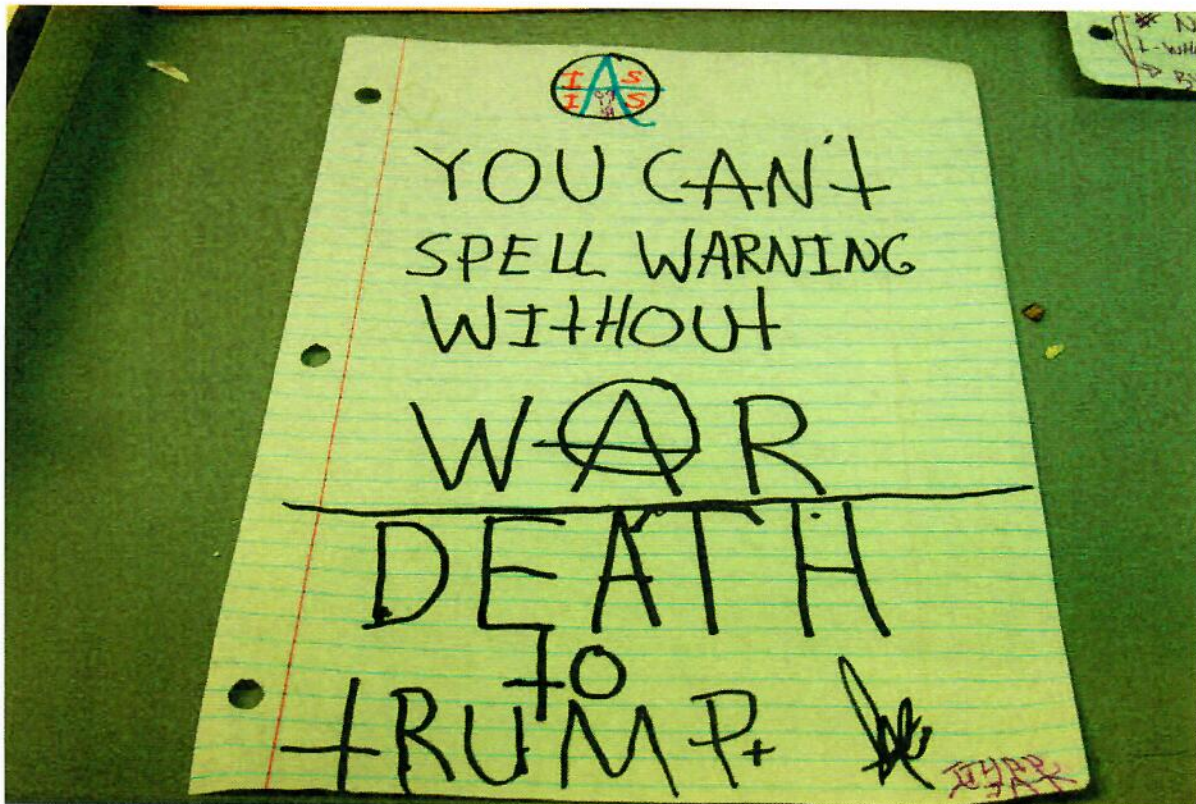 I A S
I S
YOU CAN't
SPELL WARNING
WItHOUt
WAR
DEATH
tO
tRUMP.